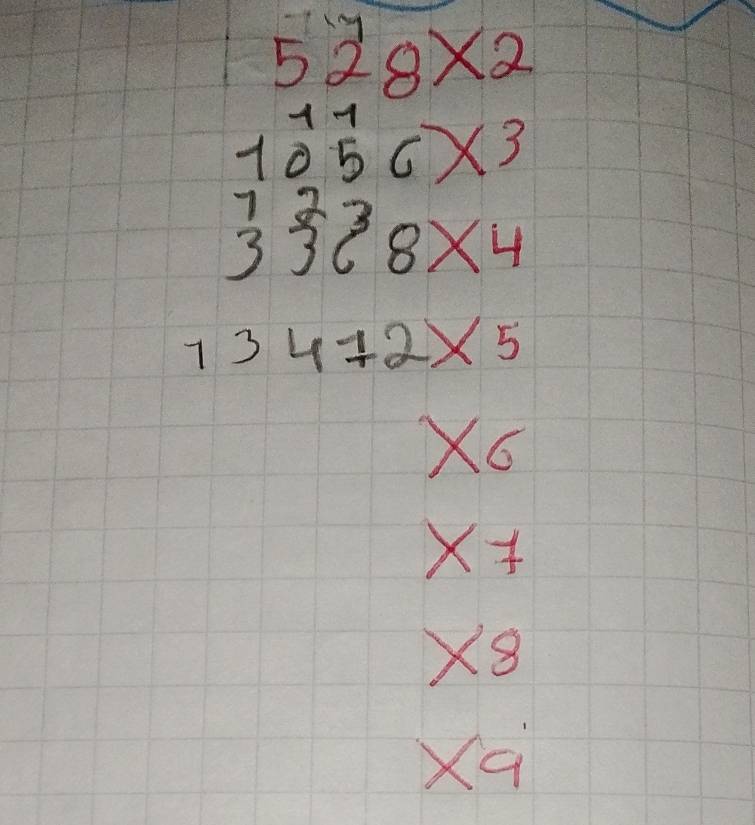 1 1
528X2
1 1
1056X3
1 2 3
3368X4
13472X5
X6
X7
X8
X9